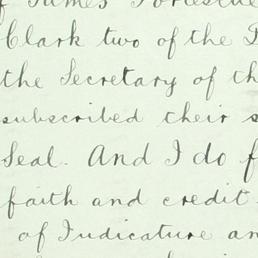 f James Fortescue
Clark two of the
the Secretary of th
subscribed their s
Seal. And I do f
faith and credit
of Judicature an